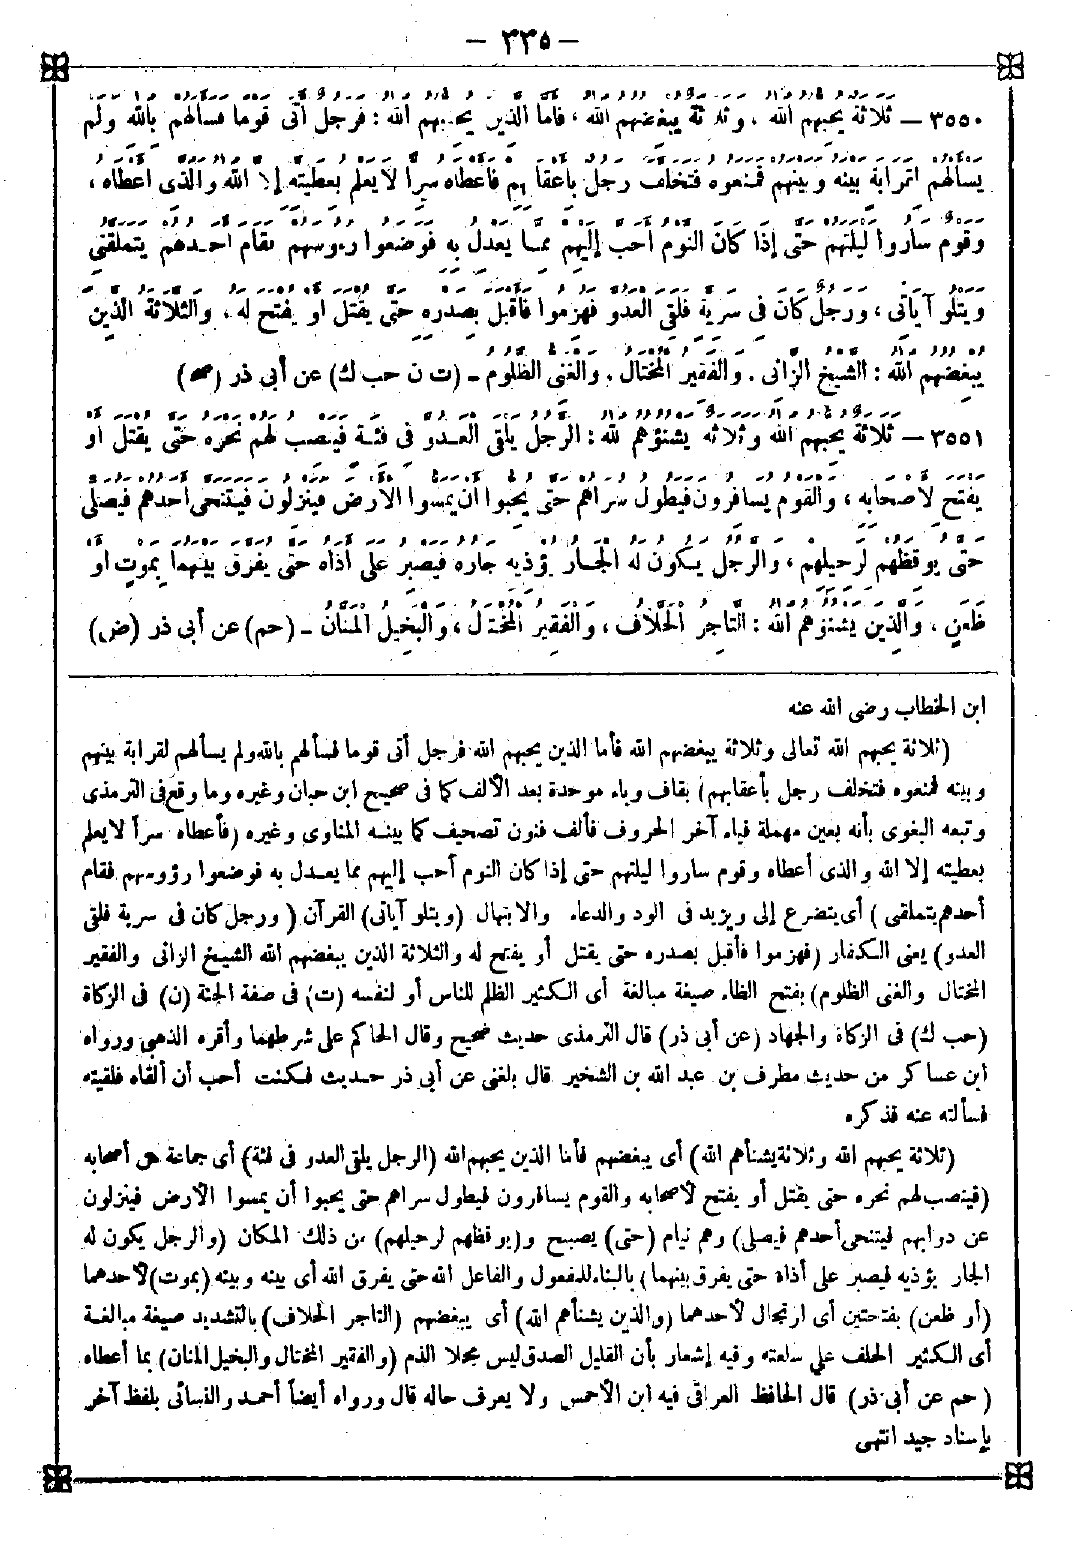 — ٣٣٥ —
٣٥٥٠ — ثلاثة يحبهم الله ، وثلاثة يبغضهم الله ، فأما الذين يحبهم الله : فرجل أتى قوما فسألهم بالله ولم
يسألهم لقرابة بينه وبينهم فمنعوه فتخلف رجل بأعقابهم فأعطاه سرا لا يعلم بعطيته إلا الله والذى أعطاه ،
وقوم ساروا ليلتهم حتى إذا كان النوم أحب إليهم مما يعدل به فوضعوا رءوسهم فقام أحدهم يتملقنى
ويتلو آياتى ، ورجل كان فى سرية فلقى العدو فهزموا فأقبل بصدره حتى يقتل أو يفتح له ، والثلاثة الذين
يبغضهم الله : الشيخ الزانى . والفقير المختال . والغنى الظلوم ـ (ت ن حب ك) عن أبى ذر (صح)
٣٥٥١ — ثلاثة يحبهم الله وثلاثة يشنؤهم الله : الرجل يلقى العدو فى فئة فينصب لهم نحره حتى يقتل أو
يفتح لأصحابه ، والقوم يسافرون فيطول سراهم حتى يحبوا ان يمسوا الارض فينزلون فيتنحى أحدهم فيصلى
حتى يوقظهم لرحيلهم ، والرجل يكون له الجار يؤذيه جاره فيصبر على أذاه حتى يفرق بينهما بموت او
ظعن ، والذين يشنؤهم الله : التاجر الحلاف ، والفقير المختال ، والبخيل المنان ـ (حم) عن أبى ذر (ض)
ابن الخطاب رضى الله عنه
(ثلاثة يحبهم الله تعالى وثلاثة يبغضهم الله فأما الذين يحبهم الله فرجل أتى قوما فسألهم بالله ولم يسألهم لقرابة بينهم
وبينه فمنعوه فتخلف رجل بأعقابهم) بقاف وباء موحدة بعد الألف كما فى صحيح ابن حبان وغيره وما وقع فى الترمذى
وتبعه البغوى بأنه بعين مهملة فياء آخر الحروف فألف فنون تصحيف كما بينه المناوى وغيره (فأعطاه سراً لا يعلم
بعطيته إلا الله والذى أعطاه وقوم ساروا ليلتهم حتى إذا كان النوم أحب إليهم مما يعدل به فوضعوا رؤوسهم فقام
أحدهم يتملقى ) أى يتضرع إلى ويزيد فى الود والدعاء والابتهال (ويتلو آياتى) القرآن ( ورجل كان فى سرية فلقى
العدو) يعنى الكفار (فهزموا فأقبل بصدره حتى يقتل أو يفتح له والثلاثة الذين يبغضهم الله الشيخ الزانى والفقير
المختال والغنى الظلوم) بفتح الظاء صيغة مبالغة أى الكثير الظلم للناس أو لنفسه (ت) فى صفة الجنة (ن) فى الزكاة
(حب ك) فى الزكاة والجهاد (عن أبى ذر) قال الترمذى حديث صحيح وقال الحاكم على شرطهما وأقره الذهبى ورواه
ابن عساكر من حديث مطرف بن عبد الله بن الشخير قال بلغنى عن أبى ذر حديث فكنت أحب أن ألقاه فلقيته
فسألته عنه فذكره
(ثلاثة يحبهم الله وثلاثة يشنأهم الله) أى يبغضهم فأما الذين يحبهم الله (الرجل يلقى العدو فى فئة) أى جماعة من أصحابه
(فينصب لهم نحره حتى يقتل أو يفتح لأصحابه والقوم يسافرون فيطول سراهم حتى يحبوا أن يمسوا الأرض فينزلون
عن دوابهم فيتنحى أحدهم فيصلى) وهم نيام (حتى) يصبح و(يوقظهم لرحيلهم) من ذلك المكان (والرجل يكون له
الجار يؤذيه فيصبر على أذاه حتى يفرق بينهما) بالبناء للمفعول والفاعل الله حتى يفرق الله أى بينه وبينه (بموت) لأحدهما
(أو ظعن) بفتحتين أى ارتحال لأحدهما (والذين يشنأهم الله) أى يبغضهم (التاجر الحلاف) بالتشديد صيغة مبالغة
أى الكثير الحلف على سلعته وفيه إشعار بأن القليل الصدق ليس محلا الذم (والفقير المختال والبخيل المنان) بما أعطاه
( حم عن أبى ذر) قال الحافظ العراقى فيه ابن الأحمس ولا يعرف حاله قال ورواه أيضاً أحمد والنسائى بلفظ آخر
بإسناد جيد انتهى